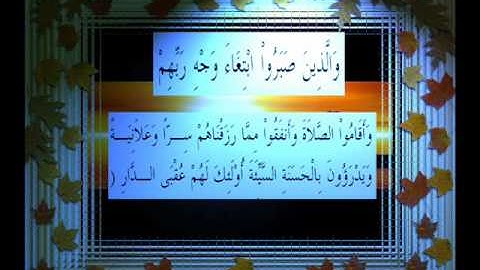 وَالَّذِينَ صَبَرُواْ ابْتِغَاءَ وَجْهِ رَبِّهِمْ
وَأَقَامُواْ الصَّلاَةَ وَأَنفَقُواْ مِمَّا رَزَقْنَاهُمْ سِرًّا وَعَلاَنِيَةً
وَيَدْرَؤُونَ بِالْحَسَنَةِ السَّيِّئَةَ أُوْلَئِكَ لَهُمْ عُقْبَى الدَّارِ (